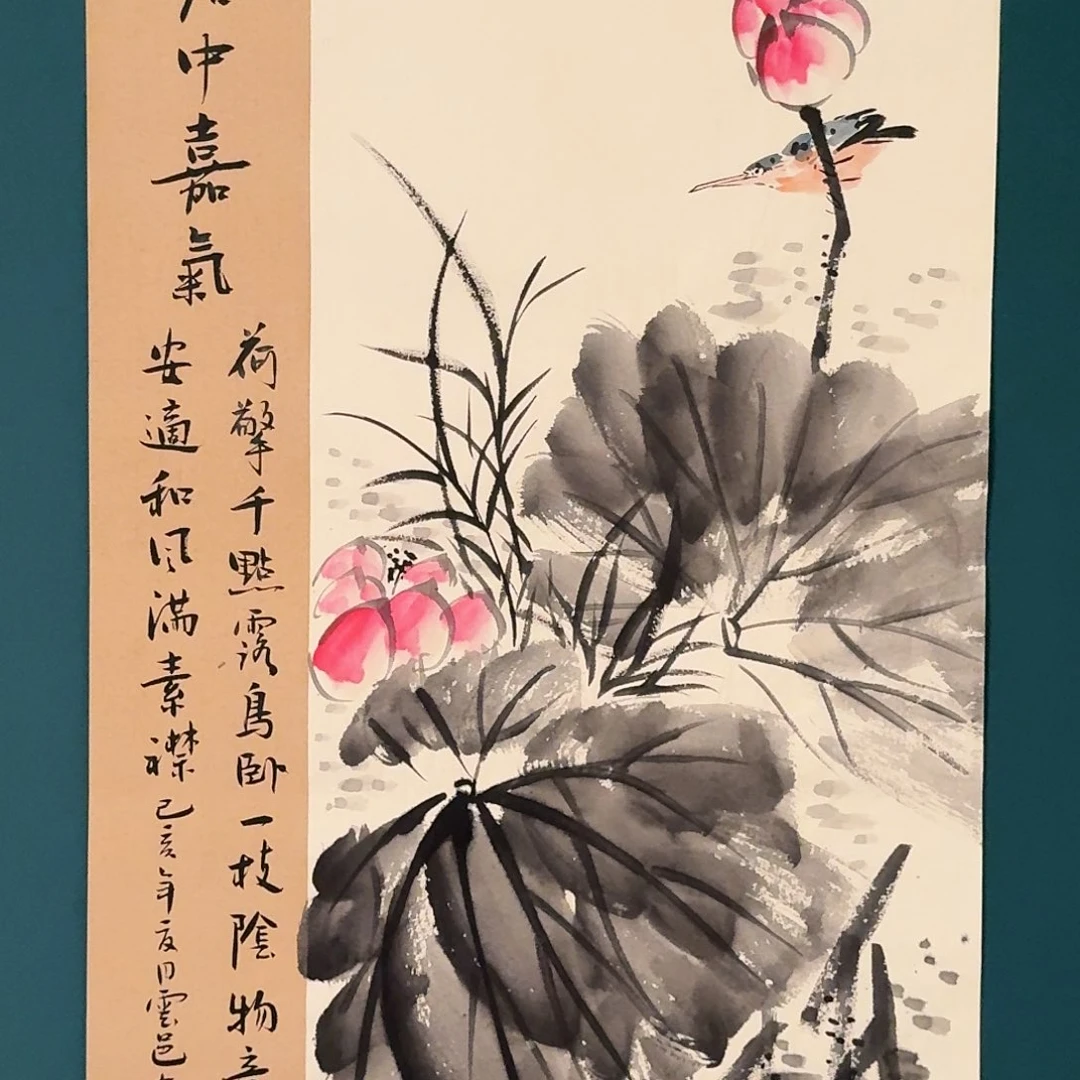 中嘉氣
荷擎千點露鳥卧一枝陰物
安適和風滿素襟己亥年夏日雲邑